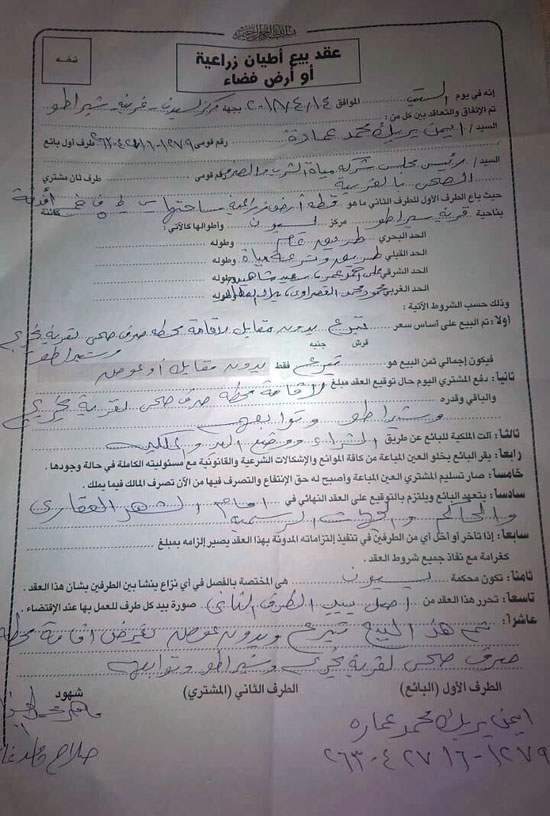 بسم الله الرحمن الرحيم
تمغه
عقد بيع أطيان زراعية
أو أرض فضاء
إنه في يوم السبت الموافق ٢٠١٨/٤/١٤ بجهة مركز بسيون - غربية - شبراطو
تم الإتفاق والتعاقد بين كل من :
السيد / ايمن بريك محمد عمارة رقم قومى طرف أول بائع
السيد / رئيس مجلس شركة مياة الشرب والصرف رقم قومى طرف ثان مشتري
الصحى بالغربية
حيث باع الطرف الأول للطرف الثاني ما هو قطعة أرض زراعية مساحتها كائنة
بناحية قرية شبراطو مركز بسيون وأطوالها كالآتي :
الحد البحري طريق عام وطوله
الحد القبلي طريق وترعة مياة وطوله
الحد الشرقي وطوله
الحد الغربي وطوله
وذلك حسب الشروط الآتية :
أولا : تم البيع على أساس سعر تبرع بدون مقابل لاقامة محطة صرف صحى لقرية
قرش جنيه وشبراطو
فيكون إجمالي ثمن البيع هو تبرع فقط بدون مقابل أو عوض
ثانيا : دفع المشتري اليوم حال توقيع العقد مبلغ لاقامة محطة صرف صحى لقرية
والباقي وقدره وشبراطو وتوابعها
ثالثا : آلت الملكية للبائع عن طريق الشراء ووضع اليد والملكية
رابعا : يقر البائع بخلو العين المباعة من كافة الموانع والإشكالات الشرعية والقانونية مع مسئوليته الكاملة في حالة وجودها .
خامسا : صار تسليم المشتري العين المباعة واصبح له حق الإنتفاع والتصرف فيها من الآن تصرف المالك فيما يملك .
سادسا : يتعهد البائع ويلتزم بالتوقيع على العقد النهائي في امام الشهر العقارى
والمحاكم والجهات الرسمية
سابعا : إذا تاخر أو اخل أي من الطرفين في تنفيذ إلتزاماته المدونة بهذا العقد يصير إلزامه بمبلغ
كغرامة مع نفاذ جميع شروط العقد .
ثامنا : تكون محكمة بسيون هى المختصة بالفصل في أي نزاع ينشا بين الطرفين بشان هذا العقد .
تاسعا : تحرر هذا العقد من اصل بيد الطرف الثانى صورة بيد كل طرف للعمل بها عند الإقتضاء .
عاشرا : تم هذا البيع تبرع وبدون عوض لغرض اقامة محطة
صرف صحى لقرية وشبراطو وتوابعها
الطرف الأول (البائع) الطرف الثاني (المشتري) شهود
ايمن بريك محمد عماره
صلاح